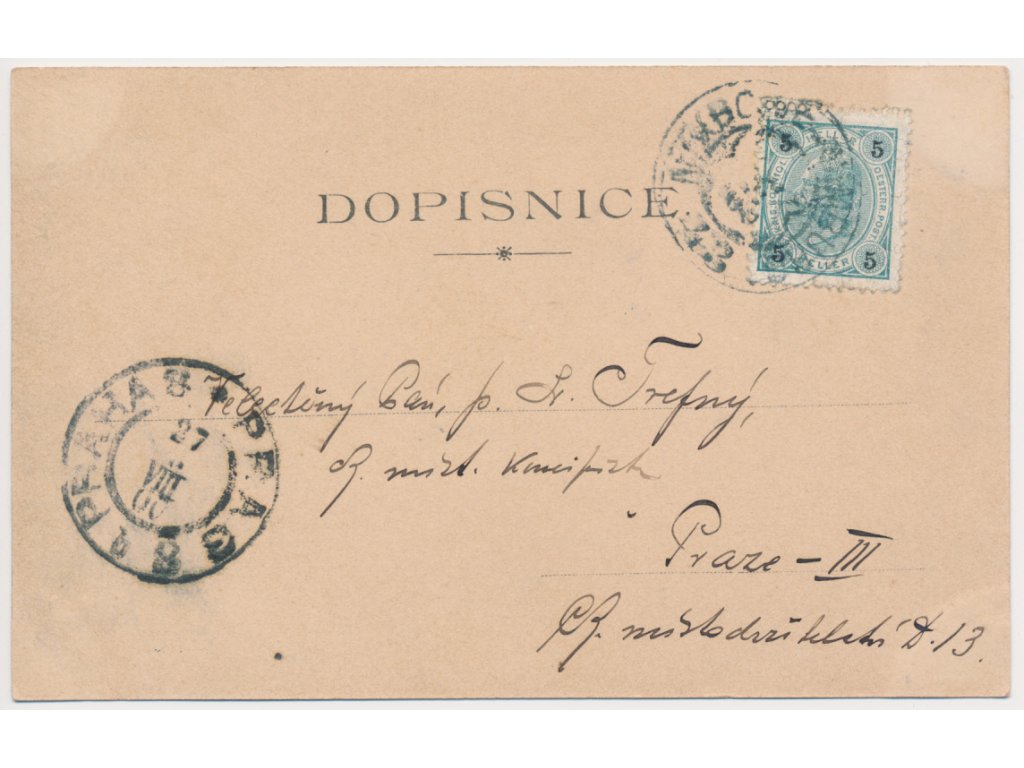 DOPISNICE
5 HELLER 5
OESTERR. POST
5 HELLER 5
PRAHA 8 * PRAG 8
27
VIII
00
Velectěný Pán, p. Fr. Trefný,
ck. míst. koncipista
Praze - III
Ck. místodržitelství D. 13.